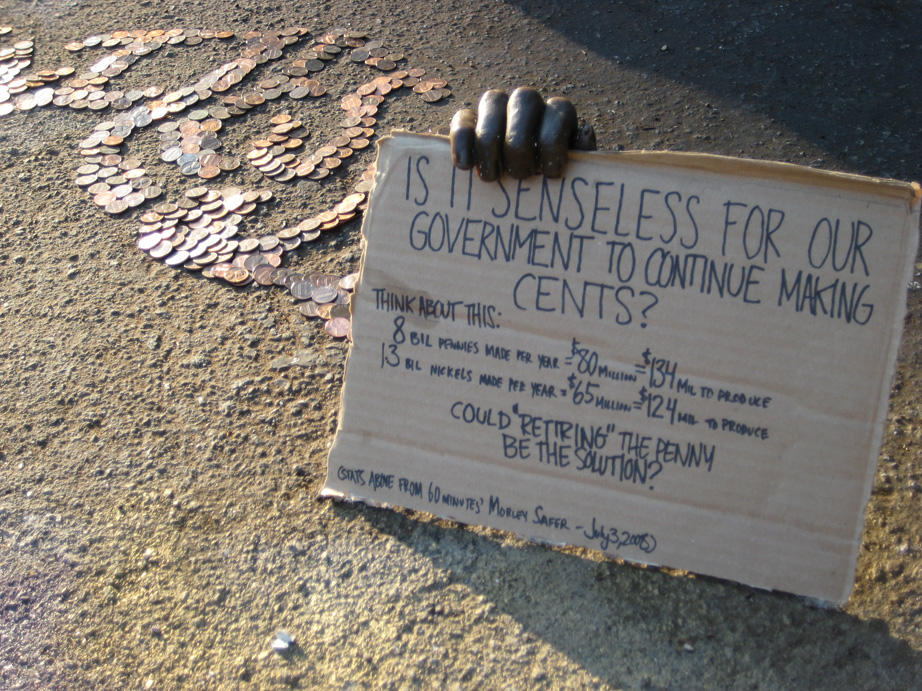 IS IT SENSELESS FOR OUR
GOVERNMENT TO CONTINUE MAKING
CENTS?
THINK ABOUT THIS:
8 BIL PENNIES MADE PER YEAR = $80 MILLION = $134 MIL TO PRODUCE
1.3 BIL NICKELS MADE PER YEAR = $65 MILLION = $124 MIL TO PRODUCE
COULD "RETRING" THE PENNY
BE THE SOLUTION?
(STATS ABOVE FROM 60 MINUTES' MORLEY SAFER - July 3, 2008)